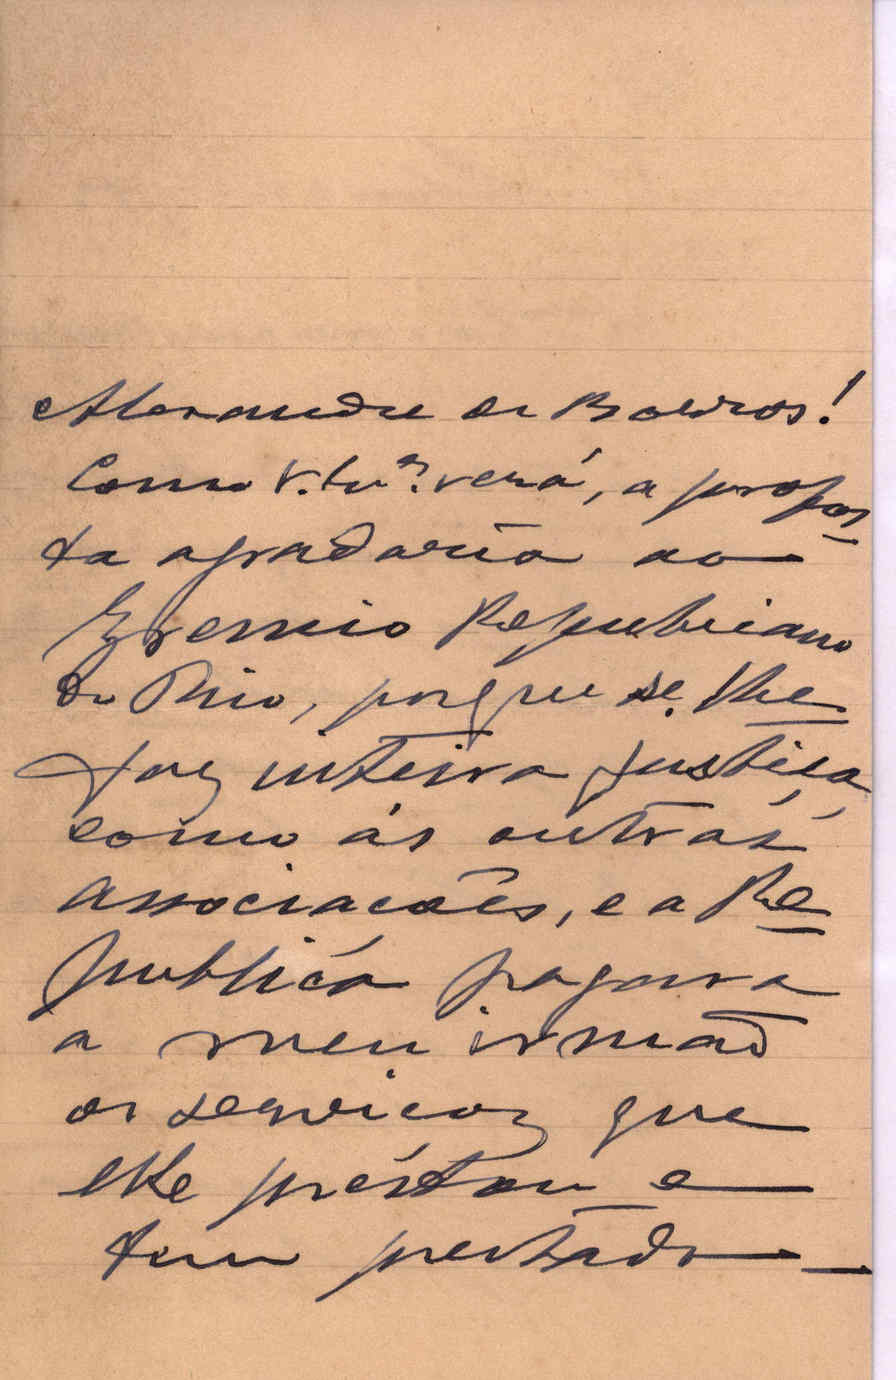 Alexandre de Barros!
Como V. verá, a propos
ta agradaria ao
Gremio Republicano
do Rio, porque se lhe
faz inteira justiça,
como ás outras
associacões, e a Re
publica pagava
a meu irmaõ
os serviços que
lhe prestou e
tem prestado